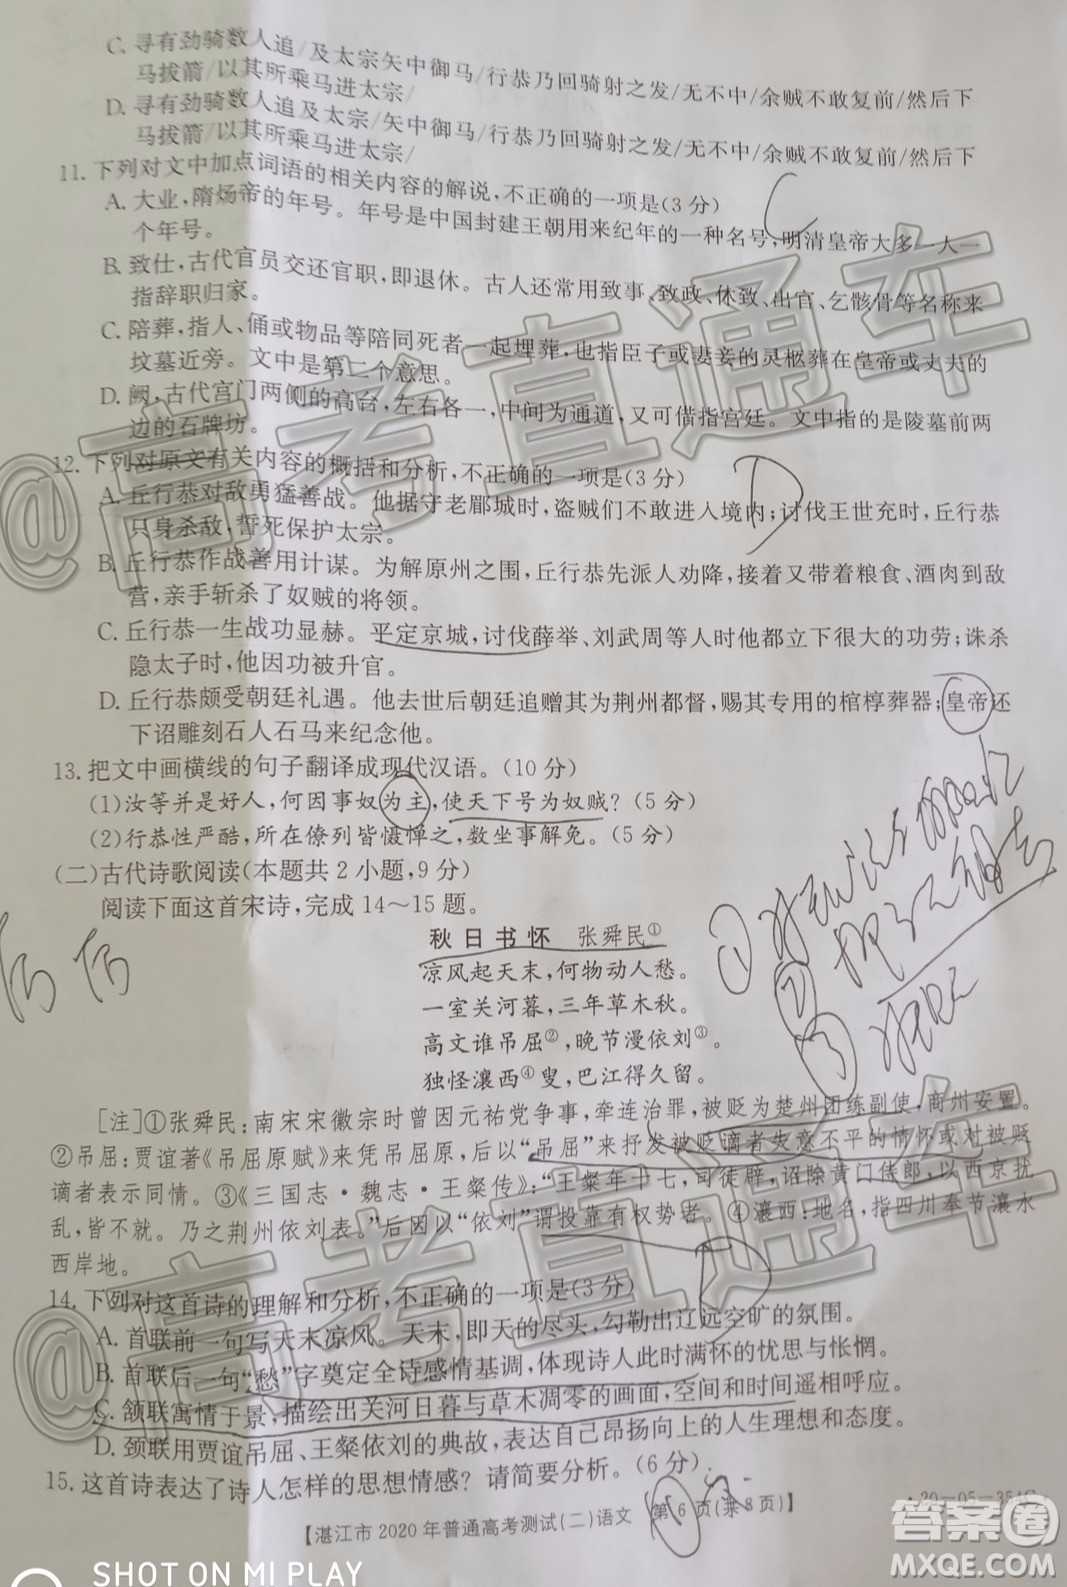 C. 寻有劲骑数人追/及太宗矢中御马/行恭乃回骑射之发/无不中/余贼不敢复前/然后下
马拔箭/以其所乘马进太宗/
D. 寻有劲骑数人追及太宗/矢中御马/行恭乃回骑射之发/无不中/余贼不敢复前/然后下
马拔箭/以其所乘马进太宗/
11. 下列对文中加点词语的相关内容的解说,不正确的一项是(3 分)
C
A. 大业,隋炀帝的年号。年号是中国封建王朝用来纪年的一种名号,明清皇帝大多一人一
个年号。
B. 致仕,古代官员交还官职,即退休。古人还常用致事、致政、休致、出官、乞骸骨等名称来
指辞职归家。
C. 陪葬,指人、俑或物品等陪同死者一起埋葬,也指臣子或妻妾的灵柩葬在皇帝或丈夫的
坟墓近旁。文中是第二个意思。
D. 阙,古代宫门两侧的高台,左右各一,中间为通道,又可借指宫廷。文中指的是陵墓前两
边的石牌坊。
12. 下列对原文有关内容的概括和分析,不正确的一项是(3 分)
D
A. 丘行恭对敌勇猛善战。他据守老郿城时,盗贼们不敢进入境内;讨伐王世充时,丘行恭
只身杀敌,誓死保护太宗。
B. 丘行恭作战善用计谋。为解原州之围,丘行恭先派人劝降,接着又带着粮食、酒肉到敌
营,亲手斩杀了奴贼的将领。
C. 丘行恭一生战功显赫。平定京城,讨伐薛举、刘武周等人时他都立下很大的功劳;诛杀
隐太子时,他因功被升官。
D. 丘行恭颇受朝廷礼遇。他去世后朝廷追赠其为荆州都督,赐其专用的棺椁葬器;皇帝还
下诏雕刻石人石马来纪念他。
13. 把文中画横线的句子翻译成现代汉语。(10 分)
(1)汝等并是好人,何因事奴为主,使天下号为奴贼?(5 分)
(2)行恭性严酷,所在僚列皆慑惮之,数坐事解免。(5 分)
(二)古代诗歌阅读(本题共 2 小题,9 分)
阅读下面这首宋诗,完成 14～15 题。
秋日书怀 张舜民①
凉风起天末,何物动人愁。
一室关河暮,三年草木秋。
高文谁吊屈②,晚节漫依刘③。
独怪瀼西④叟,巴江得久留。
[注]①张舜民:南宋宋徽宗时曾因元祐党争事,牵连治罪,被贬为楚州团练副使,商州安置。
②吊屈:贾谊著《吊屈原赋》来凭吊屈原,后以“吊屈”来抒发被贬谪者失意不平的情怀或对被贬
谪者表示同情。③《三国志·魏志·王粲传》:“王粲年十七,司徒辟,诏除黄门侍郎,以西京扰
乱,皆不就。乃之荆州依刘表。”后因以“依刘”谓投靠有权势者。④瀼西:地名,指四川奉节瀼水
西岸地。
14. 下列对这首诗的理解和分析,不正确的一项是(3 分)
D
A. 首联前一句写天末凉风。天末,即天的尽头,勾勒出辽远空旷的氛围。
B. 首联后一句“愁”字奠定全诗感情基调,体现诗人此时满怀的忧思与怅惘。
C. 颔联寓情于景,描绘出关河日暮与草木凋零的画面,空间和时间遥相呼应。
D. 颈联用贾谊吊屈、王粲依刘的典故,表达自己昂扬向上的人生理想和态度。
15. 这首诗表达了诗人怎样的思想情感?请简要分析。(6 分)
【湛江市 2020 年普通高考测试(二)语文 第 6 页(共 8 页)】
·20-05-354C·
@高考直通车
@高考直通车
答案圈
MXQE.COM
SHOT ON MI PLAY